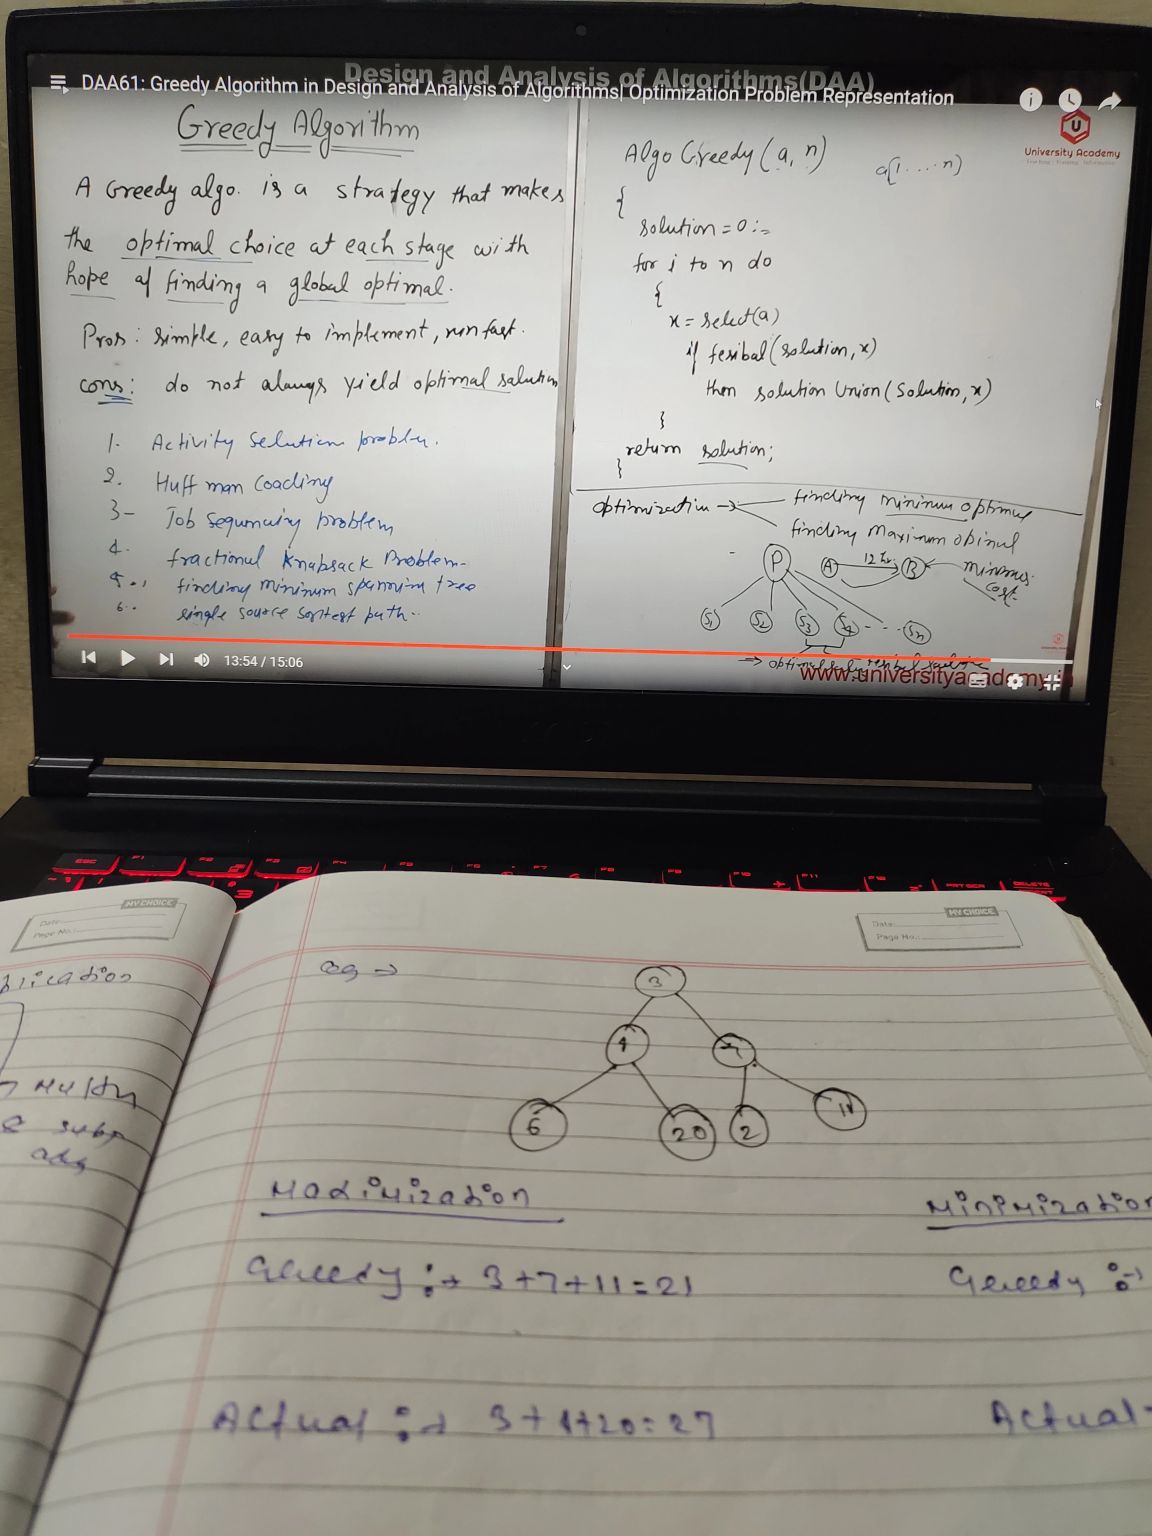 Design and Analysis of Algorithms(DAA)
DAA61: Greedy Algorithm in Design and Analysis of Algorithms| Optimization Problem Representation
University Academy
Greedy Algorithm
A Greedy algo. is a strategy that makes
the optimal choice at each stage with
hope of finding a global optimal.
Pros: simple, easy to implement, run fast.
cons: do not always yield optimal solution
1. Activity Selection problem.
2. Huffman Coading
3- Job sequencing problem
4. fractional Knapsack Problem-
5.. finding minimum spanning tree
6.. single source sortest path..
Algo Greedy (a, n)
a[1....n)
{
solution=0
for i to n do
{
x = select(a)
if fesibal(solution, x)
then solution Union(Solution, x)
}
return solution;
}
optimization →
finding minimum optimus
finding Maximum
P
A
12 hr
B
minimus
cost
S1 S2 S3 S4 - - - Sn
→
www.universityacademy.i
13:54 / 15:06
esc F1
MY CHOICE
Date
Page No.:
MY CHOICE
Date:
Page No.:
eg →
3
7
6
20
2
11
Maximization
Greedy :→ 3+7+11=21
Actual :→ 3+4+20=27
Minimization
Greedy :→
Actual